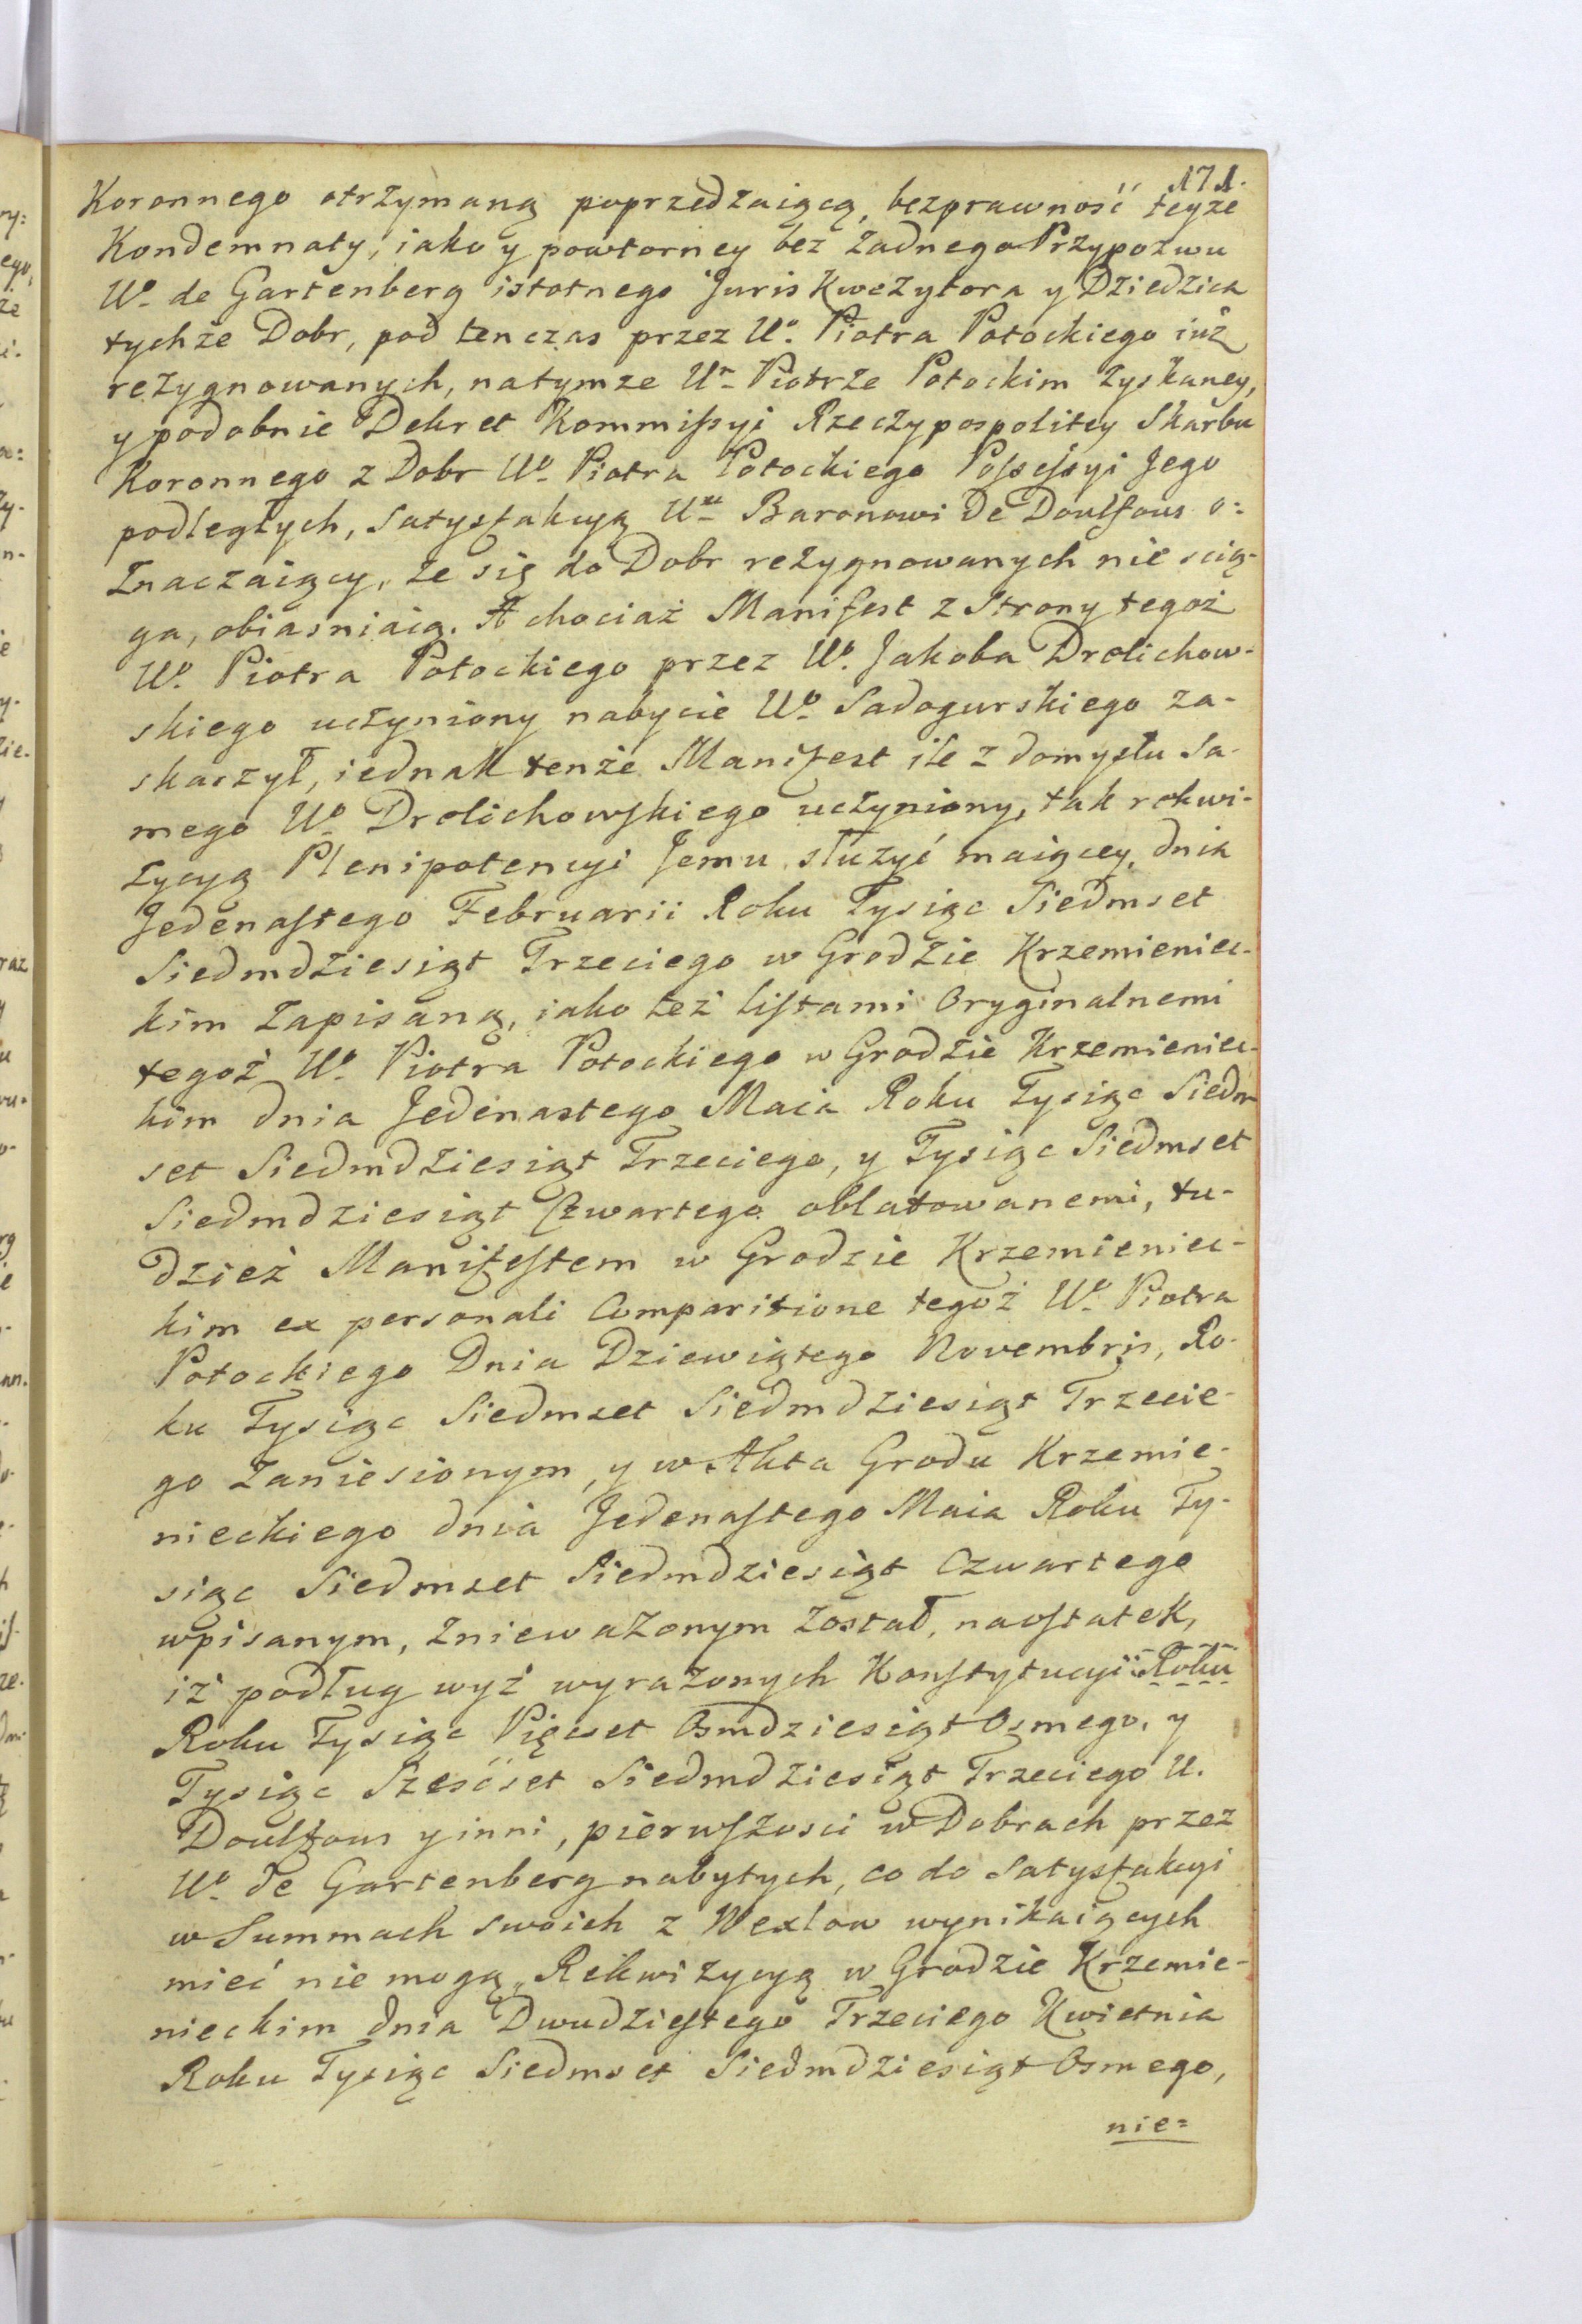 171.
Koronnego otrzymaną poprzedzaiącą, bezprawność teyże
Kondemnaty, iako y powtorney bez żadnego Przypozwu
Uº de Gartenberg istotnego Juris Kwezytora y Dziedzica
tychże Dobr, pod tenczas przez Uº Piotra Potockiego iuż
rezygnowanych, natymze Ur Piotrze Potockim zyskaney,
y podobnie Dekret Kommissyi Rzeczypospolitey Skarbu
Koronnego z Dobr Uº Piotra Potockiego Possessyi Jego
podległych, Satysfakcyą Baronowi De Doulfous o:
znaczaiący, że się do Dobr rezygnowanych nie scią-
ga, obiasniaią. A chociaż Manifest z Strony tegoż
Uº Piotra Potockiego przez Uº Jakoba Drolichow-
skiego uczyniony nabycie Uº Sadogurskiego za-
skarzył, iednak tenże Manifest ile z domysłu Sa-
mego Uº Drolichowskiego uczyniony, tak rekwi-
zycyą Plenipotencyi Jemu służyć maiącey, dnia
Jedenastego Februarii Roku Tysiąc Siedmset
Siedmdziesiąt Trzeciego w Grodzie Krzemieniec-
kim Zapisaną, iako też listami Oryginalnemi
tegoż Uº Piotra Potockiego w Grodzie Krzemieniec-
kim dnia Jedenastego Maia Roku Tysiąc Siedm
set Siedmdziesiąt Trzeciego, y Tysiąc Siedmset
Siedmdziesiąt Czwartego oblatowanemi, tu-
dzież Manifestem w Grodzie Krzemieniec-
kim ex personali Comparitione tegoż Uº Piotra
Potockiego Dnia Dziewiątego Novembris, Ro-
ku Tysiąc Siedmset Siedmdziesiąt Trzecie-
go Zaniesionym, y w Akta Grodu Krzemie-
nieckiego dnia Jedenastego Maia Roku Ty-
siąc Siedmset Siedmdziesiąt Czwartego
wpisanym, znieważonym został, naostatek,
iż podług wyż wyrażonych Konstytucyi Roku
Roku Tysiąc Pięcset Osmdziesiąt Osmego, y
Tysiąc Sześćset Siedmdziesiąt Trzeciego U.
Doulfous y inni, pierwszosci w Dobrach przez
Uº de Gartenberg nabytych, co do Satysfakcyi
w Summach swoich z Wexlow wynikaiących
mieć nie mogą „Rekwizycyą w Grodzie Krzemie-
nieckim dnia Dwudziestego Trzeciego Kwietnia
Roku Tysiąc Siedmset Siedmdziesiąt Osmego,
nie=